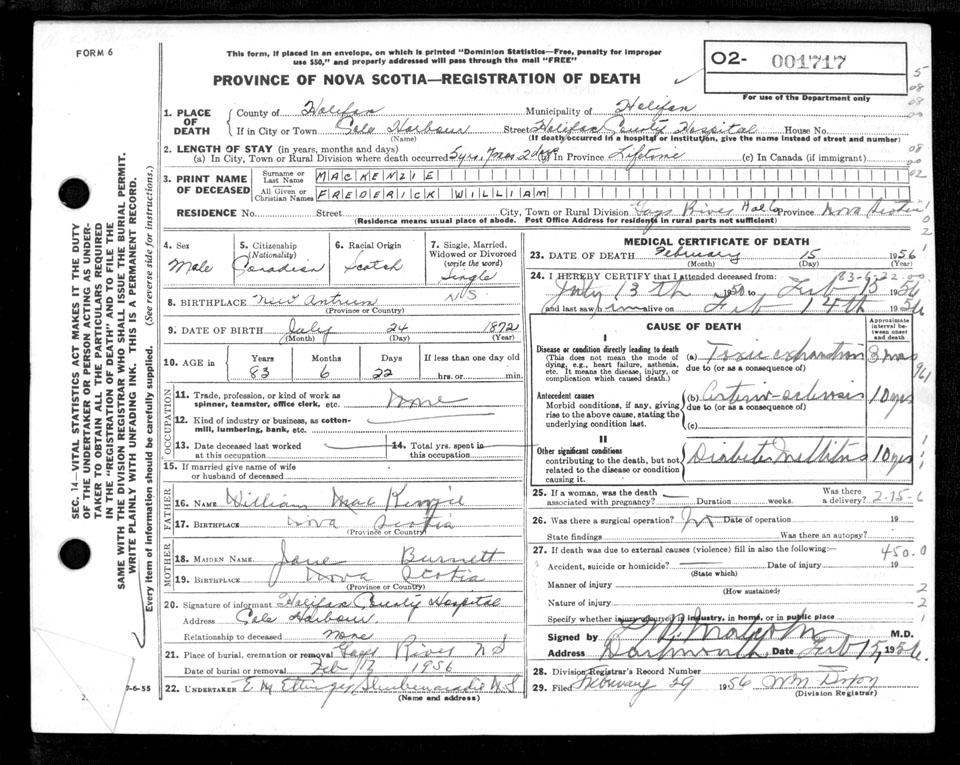 FORM 6
This form, if placed in an envelope, on which is printed "Dominion Statistics—Free, penalty for improper
use $50," and properly addressed will pass through the mail "FREE"
PROVINCE OF NOVA SCOTIA—REGISTRATION OF DEATH
02- 001717
For use of the Department only
1. PLACE OF DEATH
County of Halifax Municipality of Halifax
If in City or Town Cole Harbour Street Halifax County Hospital House No.
(Name) (If death occurred in a hospital or institution, give the name instead of street and number)
2. LENGTH OF STAY (in years, months and days)
(a) In City, Town or Rural Division where death occurred 5 yrs. 7 mos 2 days (b) in Province Lifetime (c) In Canada (if immigrant)
3. PRINT NAME OF DECEASED
Surname or Last Name MACKENZIE
All Given or Christian Names FREDERICK WILLIAM
RESIDENCE No. Street City, Town or Rural Division Gays River Hal Co Province Nova Scotia
(Residence means usual place of abode. Post Office Address for residents in rural parts not sufficient)
4. Sex
Male
5. Citizenship
(Nationality)
Canadian
6. Racial Origin
Scotch
7. Single, Married, Widowed or Divorced
(write the word)
Single
8. BIRTHPLACE New Antrim N S
(Province or Country)
9. DATE OF BIRTH July 24 1872
(Month) (Day) (Year)
10. AGE in Years Months Days If less than one day old
83 6 22 hrs. or min.
OCCUPATION
11. Trade, profession, or kind of work as spinner, teamster, office clerk, etc. None
12. Kind of industry or business, as cotton-mill, lumbering, bank, etc.
13. Date deceased last worked at this occupation
14. Total yrs. spent in this occupation
15. If married give name of wife or husband of deceased
FATHER
16. NAME William MacKenzie
17. BIRTHPLACE Nova Scotia
(Province or Country)
MOTHER
18. MAIDEN NAME Jane Burnett
19. BIRTHPLACE Nova Scotia
(Province or Country)
20. Signature of informant Halifax County Hospital
Address Cole Harbour
Relationship to deceased none
21. Place of burial, cremation or removal Gays River N S
Date of burial or removal Feb 17 1956
22. UNDERTAKER E M Ettinger Shubenacadie N S
(Name and address)
MEDICAL CERTIFICATE OF DEATH
23. DATE OF DEATH February 15 1956
(Month) (Day) (Year)
83-6-22
24. I HEREBY CERTIFY that I attended deceased from:
July 13th 1950 to Feb 15 1956
and last saw him alive on Feb 14th 1956
CAUSE OF DEATH
Approximate interval between onset and death
I
Disease or condition directly leading to death
(This does not mean the mode of dying, e.g., heart failure, asthenia, etc. It means the disease, injury, or complication which caused death.)
(a) Toxic exhaustion 3 mos
due to (or as a consequence of)
Antecedent causes
Morbid conditions, if any, giving rise to the above cause, stating the underlying condition last.
(b) Arterio-sclerosis 10 yrs
due to (or as a consequence of)
(c)
II
Other significant conditions
contributing to the death, but not related to the disease or condition causing it.
Diabetes Mellitus 10 yrs
25. If a woman, was the death associated with pregnancy? Duration weeks. Was there a delivery?
2-15-6
26. Was there a surgical operation? No Date of operation 19
State findings Was there an autopsy?
27. If death was due to external causes (violence) fill in also the following:— 450.0
Accident, suicide or homicide? Date of injury 19
(State which)
Manner of injury
(How sustained)
Nature of injury
Specify whether injury occurred in industry, in home, or in public place
Signed by Malcolm M.D.
Address Dartmouth Date Feb 15, 1956
28. Division Registrar's Record Number
29. Filed February 29 1956 Wm Dixon
(Division Registrar)
7-6-55
SEC. 14—VITAL STATISTICS ACT MAKES IT THE DUTY
OF THE UNDERTAKER OR PERSON ACTING AS UNDER-
TAKER TO OBTAIN ALL THE PARTICULARS REQUIRED
IN THE "REGISTRATION OF DEATH" AND TO FILE THE
SAME WITH THE DIVISION REGISTRAR WHO SHALL ISSUE THE BURIAL PERMIT.
WRITE PLAINLY WITH UNFADING INK. THIS IS A PERMANENT RECORD.
Every item of information should be carefully supplied. (See reverse side for instructions.)